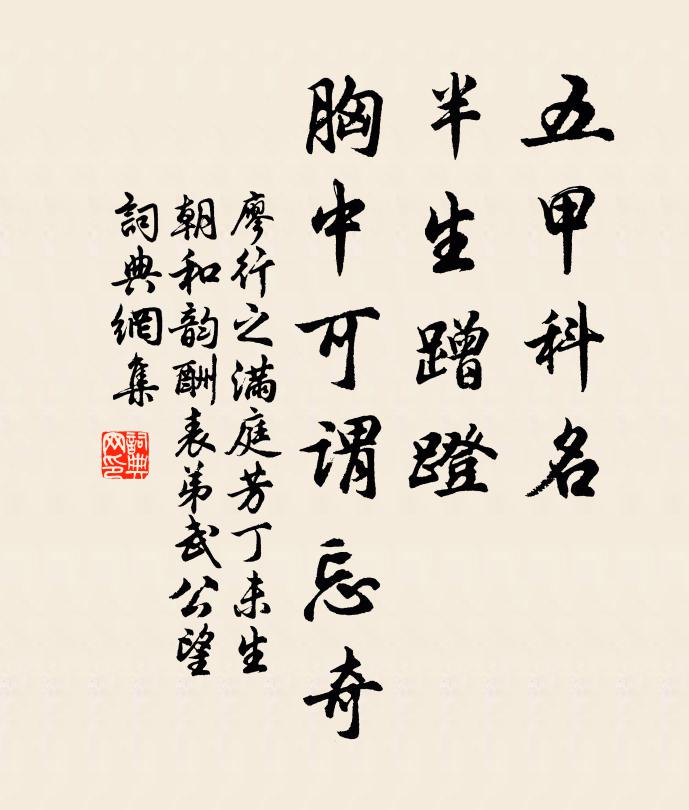 五甲科名
半生蹭蹬
胸中可謂忘奇
廖行之滿庭芳丁未生
朝和韵酬表弟武公望
詞典網集
詞典网印